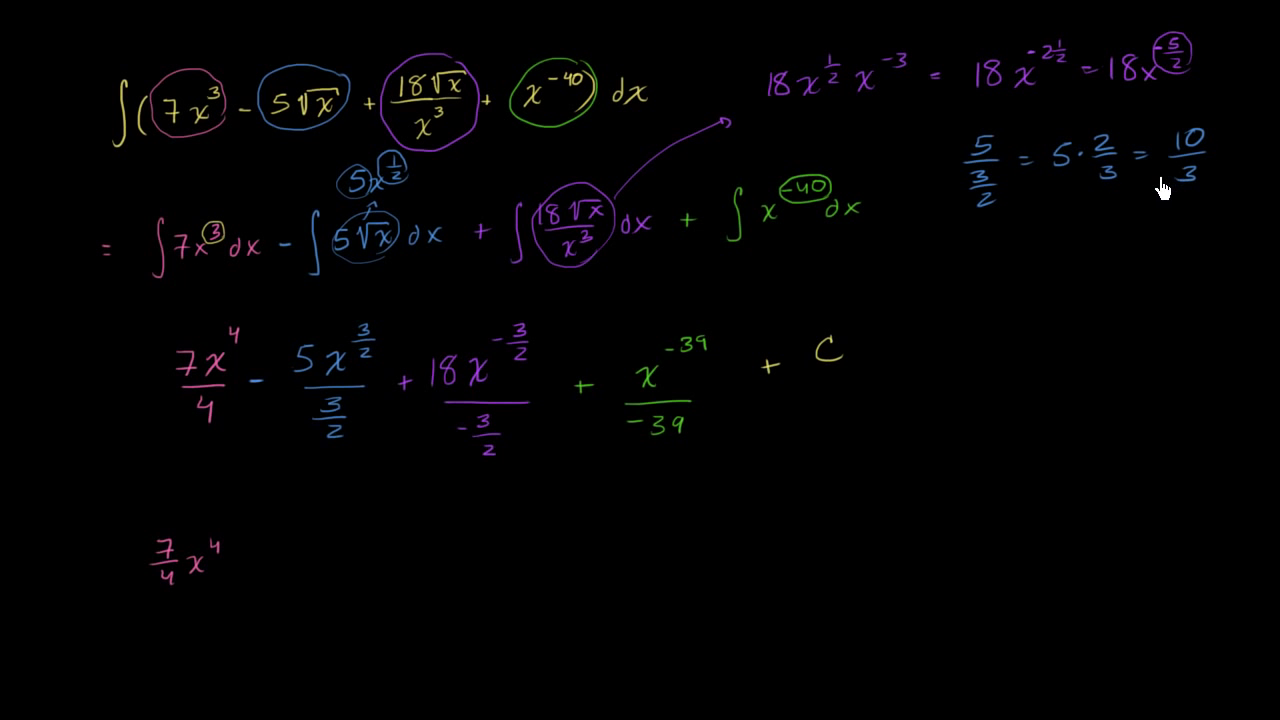 ∫(7x³ - 5√x + 18√x/x³ + x⁻⁴⁰) dx
18x^(1/2) x⁻³ = 18x^(-2 1/2) = 18x^(-5/2)
5/(3/2) = 5 · 2/3 = 10/3
5x^(1/2)
= ∫7x³dx - ∫5√x dx + ∫18√x/x³ dx + ∫x⁻⁴⁰dx
7x⁴/4 - 5x^(3/2)/(3/2) + 18x^(-3/2)/(-3/2) + x⁻³⁹/-39 + C
7/4 x⁴